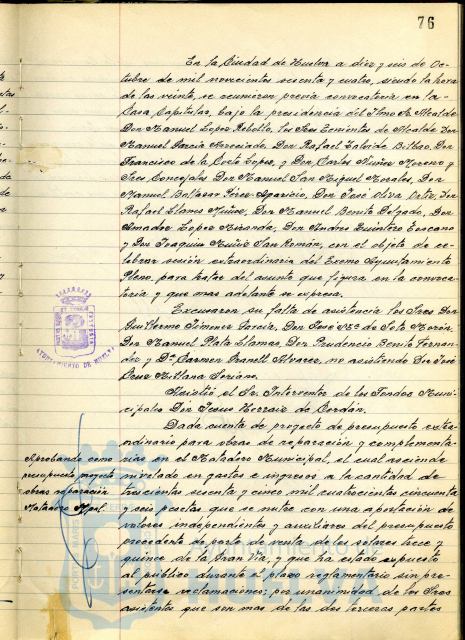 76
En la Ciudad de Huelva a diez y seis de Oc-
tubre de mil novecientos sesenta y cuatro, siendo la hora
de las veinte, se reunieron previa convocatoria en la
Casa Capitular, bajo la presidencia del Iltmo Sr Alcalde
Don Manuel López Rebollo, los Sres Tenientes de Alcalde Don
Manuel García Don Rafael Bilbao, Don
Francisco de la Corte López, y Don Carlos Núñez Moreno y
Sres Concejales Don Manuel San Miguel Morales, Don
Manuel Baltasar Pérez Aparicio, Don José Oliva Ortiz, Don
Rafael Llanes Muñoz, Don Manuel Benito Delgado, Don
Amadeo López Miranda, Don Andrés Quintero Toscano
y Don Joaquín San Román, con el objeto de ce-
lebrar sesión extraordinaria del Excmo Ayuntamiento
Pleno, para tratar del asunto que figura en la convoca-
toria y que mas adelante se expresa.
Excusaron su falta de asistencia los Sres Don
Guillermo Jiménez García, Don José Mª de Soto Morón,
Don Manuel Plata Llamas, Don Prudencio Benito Fernan-
dez y Dª Carmen Alvarez, no asistiendo Don José
Cruz Millana Soriano.
Asistió el Sr. Interventor de los Fondos Muni-
cipales Don Jesus Herraiz de Cerdán.
Dada cuenta de proyecto de presupuesto extra-
ordinario para obras de reparación y complementa-
Aprobando como
rias en el Matadero Municipal, el cual asciende
presupuesto proyecto
nivelado en gastos e ingresos a la cantidad de
obras reparación
trescientas sesenta y cinco mil cuatrocientas cincuenta
Matadero Mpal.
y seis pesetas que se nutre con una aportación de
valores independientes y auxiliares del presupuesto
procedente de parte de venta de los solares trece y
quince de la Gran Vía, y que ha estado expuesto
al público durante el plazo reglamentario sin pre-
sentarse reclamaciones; por unanimidad de los Sres
asistentes que son mas de las dos terceras partes
AYUNTAMIENTO DE HUELVA
Ayuntamiento de
HUELVA